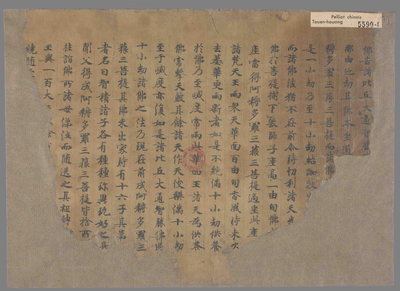 Pelliot chinois
Touen-houang
5590-1
佛告諸比丘大通智勝
那由他劫其佛本坐道
耨多羅三藐三菩提而諸
是一小劫乃至十小劫結跏趺
而諸佛法猶不在前尒時忉利諸天
佛於菩提樹下敷師子座高一由旬佛
座當得阿耨多羅三藐三菩提適坐此座
諸梵天王雨眾天華面百由旬香風時來吹
去萎華更雨新者如是不絕滿十小劫供養
於佛乃至滅度常雨此華四王諸天為供養
佛常擊天鼓其餘諸天作天伎樂滿十小劫
至于滅度亦復如是諸比丘大通智勝佛過
十小劫諸佛之法乃現在前成阿耨多羅三
藐三菩提其佛未出家時有十六子其第
者名曰智積諸子各有種種珍異玩好之具
聞父得成阿耨多羅三藐三菩提皆捨所
往詣佛所諸母涕泣而隨送之其祖轉
王與一百大
繞隨至